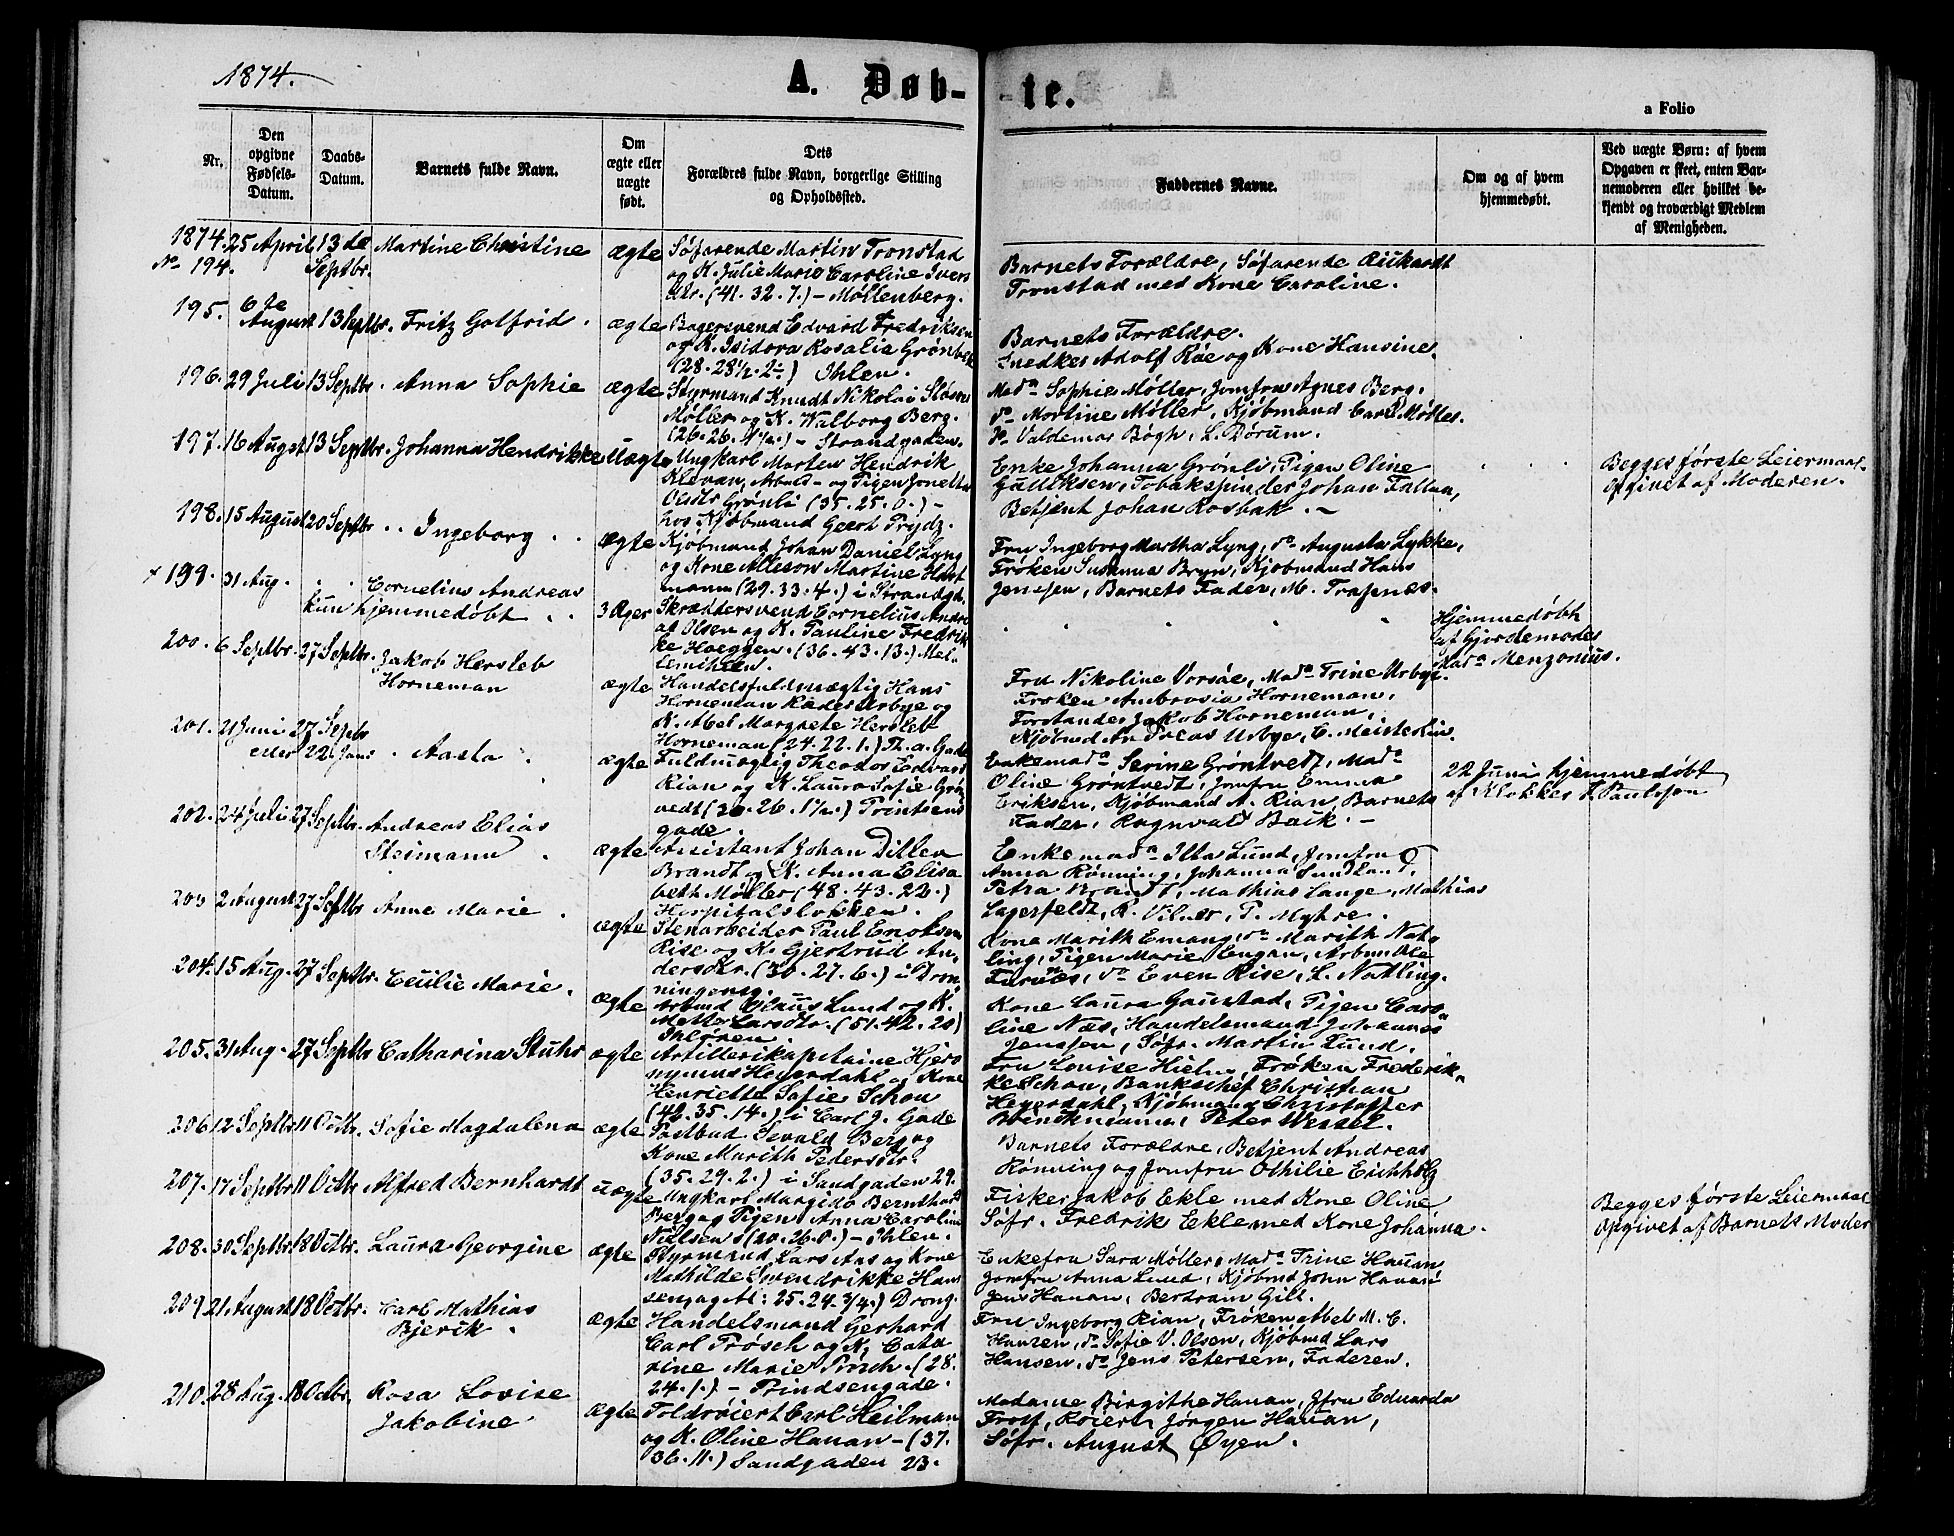 1874.
A. Døb-
-te.
a Folio
Nr.
Den
opgivne
Fødsels-
Datum.
Daabs-
Datum.
Barnets fulde Navn.
Om
ægte eller
uægte
født.
Dets
Forældres fulde Navn, borgerlige Stilling
og Opholdssted.
Faddernes Navne.
Om og af hvem
hjemmedøbt.
Ved uægte Børn: af hvem
Opgaven er skeet, enten Bar-
nemoderen eller hvilket be-
kjendt og troværdigt Medlem
af Menigheden.
1874. 25 April 13 de Martine Christine ægte Søfarende Martin Tronstad
No 194. Septbr. og K. Julie Marie Caroline Ivers
dtr. (41. 32. 7.) - Møllenberg.
Barnets Forældre, Søfarende Rickardt
Tronstad med Kone Caroline.
195. 6 te August 13 Septbr. Fritz Gotfrid. ægte Bagersvend Edvard Fredriksen
og K. Isidora Rosalia Grønbek
(28. 28½. 2) Ihlen.
Barnets Forældre.
Snedker Adolf Røe og Kone Hansine.
196. 29 Juli 13 Septbr. Anna Sophie ægte Styrmand Knudt Nikolai
Møller og K. Walborg Berg.
(26. 26. 1½.) - Strandgaden.
Mada Sophie Møller, Jomfru Agnes Berg.
do Martine Møller, Kjøbmand Carl Møller.
do Valdemar Bøgh, L. Dørum.
197. 16 Augst 13 Septbr. Johanna Hendrikke Uægte Ungkarl Morten Hendrik
Klevan, Arbmd - og Pigen Jonetta
Olsdtr Grønli (35. 25. 0.) -
hos Kjøbmand Geert Prydz.
Enke Johanna Grønli, Pigen Oline
Gulliksen, Tobakspinder Johan Fallan,
Betjent Johan Rosbak. -
Begges første Leiermaal.
Opgivet af Moderen.
198. 15 August 20 Septbr. Ingeborg ægte Kjøbmand Johan Daniel Lyng
og Kone Martine Hart
mann (29. 33. 4.) i Strandgd.
Fru Ingeborg Martha Lyng, do Augusta Lykke,
Frøken Susanna Bryn, Kjøbmand Hans
Jenssen, Barnets Fader, M. Trapnes.
199. 31 Aug. Cornelius Andreas
kun hjemmedøbt
3 Æger Skræddersvend Cornelius Andre
as Olsen og K. Pauline Fredrik
ke Hoeggen. (36. 43. 13.) Mel-
lemihlen.
Hjemmedøbt
af Gjordemoder
Mada Menzonius.
200. 6 Septbr. 27 Septbr. Jakob Hersleb
Horneman
ægte Handelsfuldmægtig Hans
Horneman Ræder Urbye og
K. Abel Margrete Hersleb
Horneman (24. 22. 1.) Th. a. Gade
Fru Nikoline Vorsøe, Mada Trine Urbye.
Frøken Ambrosia Horneman,
Forstander Jakob Horneman,
Kjøbmd Andreas Urbye, C. Meisterlin.
201. 21 Juni 27 Septbr
eller 22 Juni Aasta
ægte Fuldmægtig Theodor Edvard
Rian og K. Laura Sofie Grønt
vedt (30. 26. 1½.) Printsens
gade.
Enkemada Serine Grøntvedt, Mada
Oline Grøntvedt, Jomfru Emma
Eriksen, Kjøbmand A. Rian, Barnets
Fader, Ragnvald Baik. -
22 Juni hjemmedøbt
af Klokker S. Paulsson
202. 24 Juli 27 Septbr. Andreas Elias
Steimann
ægte Assistent Johan Ditlev
Brandt og K. Anna Elisa
beth Møller (48. 43. 22.)
Hospitalsløkken.
Enkemada Ilta Lund, Jomfru
Anna Rønning, Johanna Sundland,
Petra Brandt, Mathias Lange, Mathias
Lagerfeldt, R. Vilner, P. Myhre.
203 2 August 27 Septbr Anne Marie
ægte Stenarbeider Paul Enoksen
Rise og K. Gjertrud An-
dersdtr. (30. 27. 6.) i Dron-
ningensg.
Kone Marith Emang, do Marith Nat-
ling, Pigen Marie Lengan, Arbmd Ole
Furnes, do Even Rise, L. Natling.
204. 15 Aug. 27 Septbr. Cecilie Marie.
ægte Arbmd Claus Lund og K.
Mette Larsdtr. (51. 42. 20)
Ihløren.
Kone Laura Gaustad, Pigen Caro-
line Næs, Handelsmand Johannes
Jenssen, Søfr. Martin Lund.
205. 31 Aug. 27 Septbr Catharina Stuhr ægte Artillerikapitaine Hjero
nymus Heyerdahl og Kone
Henriette Sofie Schou
(42. 35. 14.) i Carl J. Gade
Fru Louise Hielm, Frøken Frederik-
ke Schou, Bankschef Christian
Heyerdahl, Kjøbmand Christoffer
Brenckmann, Peter Wessel.
206. 12 Septbr 11 Octbr. Sofie Magdalena ægte Postbud Sevald Berg og
Kone Marith Pedersdtr.
(35. 29. 2.) i Sandgaden 29.
Barnets Forældre, Betjent Andreas
Rønning og Jomfru Othilie Eichholz
207. 17 Septbr 11 Octbr Alfred Bernhardt uægte Ungkarl Margido Bernthard
Berg og Pigen Anna Caroline
Nielsen (20. 26. 0.) - Ihlen.
Fisker Jakob Ekle med Kone Oline
Søfr. Fredrik Ekle med Kone Johanna.
Begges første Leiermaal
Opgivet af Barnets Moder
208. 30 Septbr 18 Octbr. Laura Georgine ægte Styrmand Lars Aas og Kone
Mathilde Svendrikke Hans
25. 24. ¾.) Drong.
Enkefru Sara Møller, Mada Trine Hauan
Jomfru Anna Lund, Kjøbmd John Hauan
Jens Hauan, Bertram Gill.
209. 21 August 18 Octbr. Carl Mathias
Bjerck.
ægte Handelsmand Gerhard
Carl Frøsch og K. Catha
rine Marie Frøsch. (28.
24. 1.) - Prindsensgade.
Fru Ingeborg Rian, Frøken Abbel M. C.
Hansen, do Sofie V. Olsen, Kjøbmd Lars
Hansen, do Jens Petersen, Faderen.
210. 28 Aug. 18 Octbr. Rosa Lovise
Jakobine
ægte Toldrøiert Carl Heilman
og K. Oline Hauan - (37.
36. 11.) Sandgaden 23.
Madame Birgithe Hauan, Jfru Eduarda
Frost, Røiert Jørgen Hauan,
Søfr. August Øyen.